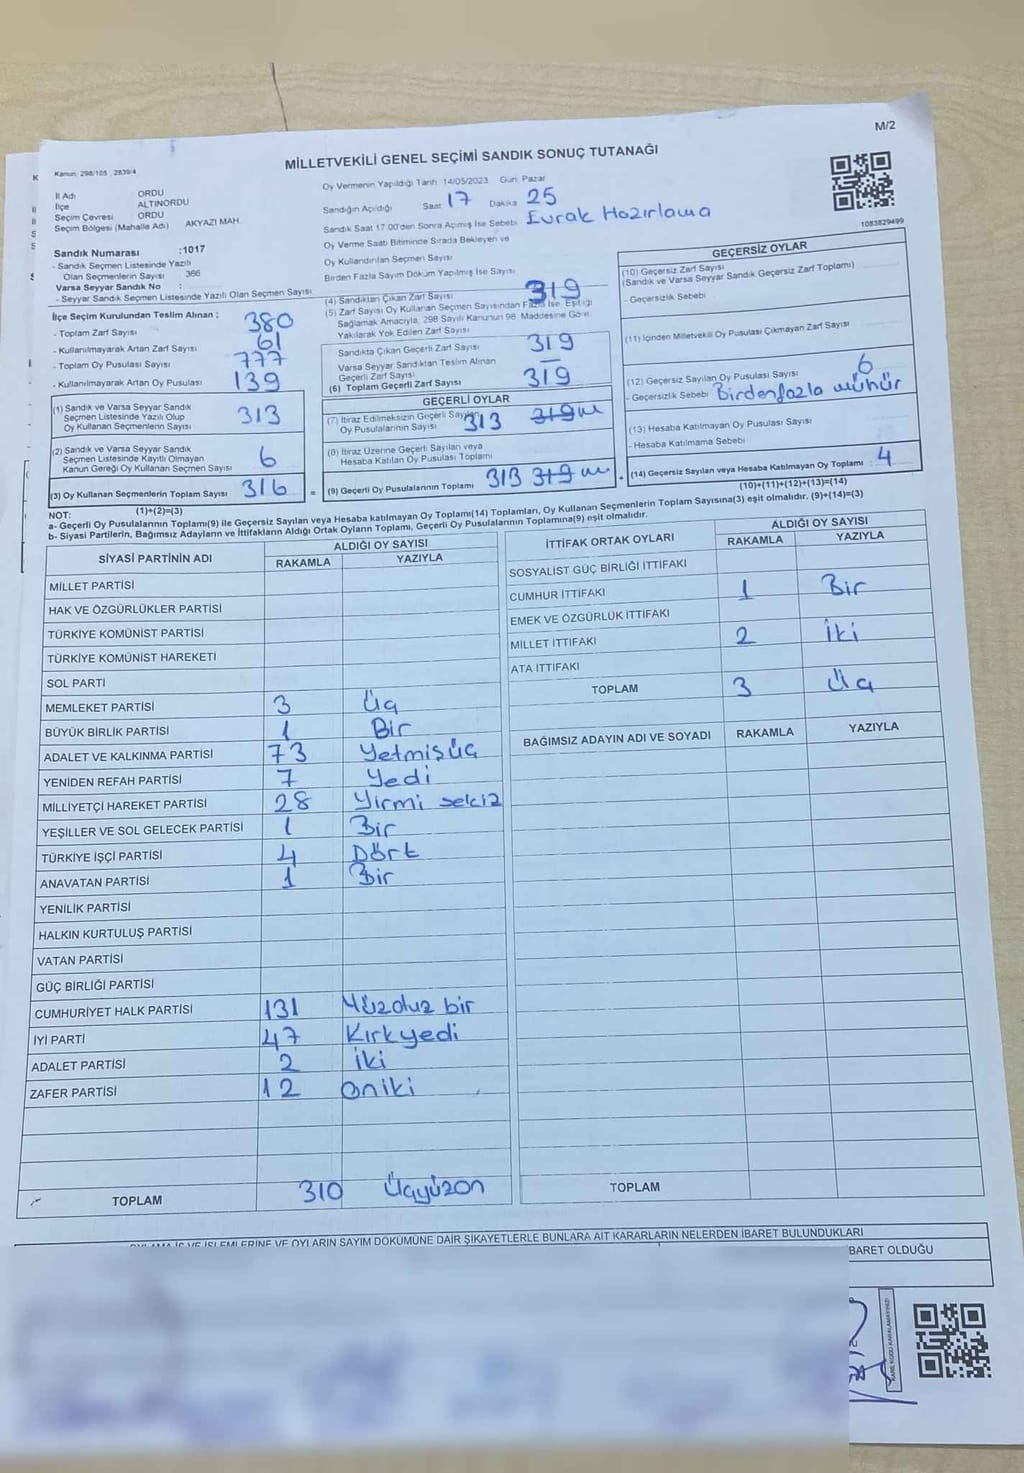 M/2
Kanun: 298/105 , 2839/4
MİLLETVEKİLİ GENEL SEÇİMİ SANDIK SONUÇ TUTANAĞI
İl Adı ORDU
İlçe ALTINORDU
Seçim Çevresi ORDU
Seçim Bölgesi (Mahalle Adı) AKYAZI MAH.
Oy Vermenin Yapıldığı Tarih 14/05/2023 Gün Pazar
Sandığın Açıldığı Saat 17 Dakika 25
Sandık Saat 17.00'den Sonra Açmış İse Sebebi Evrak Hazırlama
Oy Verme Saati Bitiminde Sırada Bekleyen ve
Oy Kullandırılan Seçmen Sayısı
Birden Fazla Sayım Döküm Yapılmış İse Sayısı
1083829499
Sandık Numarası :1017
- Sandık Seçmen Listesinde Yazılı
Olan Seçmenlerin Sayısı 366
Varsa Seyyar Sandık No :
- Seyyar Sandık Seçmen Listesinde Yazılı Olan Seçmen Sayısı
İlçe Seçim Kurulundan Teslim Alınan ;
- Toplam Zarf Sayısı 380
- Kullanılmayarak Artan Zarf Sayısı 61
- Toplam Oy Pusulası Sayısı 777
- Kullanılmayarak Artan Oy Pusulası 139
(1) Sandık ve Varsa Seyyar Sandık
Seçmen Listesinde Yazılı Olup
Oy Kullanan Seçmenlerin Sayısı 313
(2) Sandık ve Varsa Seyyar Sandık
Seçmen Listesinde Kayıtlı Olmayan
Kanun Gereği Oy Kullanan Seçmen Sayısı 6
(3) Oy Kullanan Seçmenlerin Toplam Sayısı 316
(1)+(2)=(3)
(4) Sandıktan Çıkan Zarf Sayısı 319
(5) Zarf Sayısı Oy Kullanan Seçmen Sayısından Fazla İse, Eşitliği
Sağlamak Amacıyla, 298 Sayılı Kanunun 98. Maddesine Göre
Yakılarak Yok Edilen Zarf Sayısı
Sandıkta Çıkan Geçerli Zarf Sayısı 319
Varsa Seyyar Sandıktan Teslim Alınan
Geçerli Zarf Sayısı —
(6) Toplam Geçerli Zarf Sayısı 319
GEÇERLİ OYLAR
(7) İtiraz Edilmeksizin Geçerli Sayılan
Oy Pusulalarının Sayısı 313 319
(8) İtiraz Üzerine Geçerli Sayılan veya
Hesaba Katılan Oy Pusulası Toplamı
= (9) Geçerli Oy Pusulalarının Toplamı 313 319
GEÇERSİZ OYLAR
(10) Geçersiz Zarf Sayısı
(Sandık ve Varsa Seyyar Sandık Geçersiz Zarf Toplamı)
- Geçersizlik Sebebi
(11) İçinden Milletvekili Oy Pusulası Çıkmayan Zarf Sayısı
(12) Geçersiz Sayılan Oy Pusulası Sayısı 6
- Geçersizlik Sebebi Birden fazla mühür
(13) Hesaba Katılmayan Oy Pusulası Sayısı
- Hesaba Katılmama Sebebi
+ (14) Geçersiz Sayılan veya Hesaba Katılmayan Oy Toplamı 4
(10)+(11)+(12)+(13)=(14)
NOT:
a- Geçerli Oy Pusulalarının Toplamı(9) ile Geçersiz Sayılan veya Hesaba katılmayan Oy Toplamı(14) Toplamları, Oy Kullanan Seçmenlerin Toplam Sayısına(3) eşit olmalıdır. (9)+(14)=(3)
b- Siyasi Partilerin, Bağımsız Adayların ve İttifakların Aldığı Ortak Oyların Toplamı, Geçerli Oy Pusulalarının Toplamına(9) eşit olmalıdır.
SİYASİ PARTİNİN ADI ALDIĞI OY SAYISI
RAKAMLA YAZIYLA
MİLLET PARTİSİ
HAK VE ÖZGÜRLÜKLER PARTİSİ
TÜRKİYE KOMÜNİST PARTİSİ
TÜRKİYE KOMÜNİST HAREKETİ
SOL PARTİ
MEMLEKET PARTİSİ 3 Üç
BÜYÜK BİRLİK PARTİSİ 1 Bir
ADALET VE KALKINMA PARTİSİ 73 Yetmişüç
YENİDEN REFAH PARTİSİ 7 Yedi
MİLLİYETÇİ HAREKET PARTİSİ 28 Yirmi sekiz
YEŞİLLER VE SOL GELECEK PARTİSİ 1 Bir
TÜRKİYE İŞÇİ PARTİSİ 4 Dört
ANAVATAN PARTİSİ 1 Bir
YENİLİK PARTİSİ
HALKIN KURTULUŞ PARTİSİ
VATAN PARTİSİ
GÜÇ BİRLİĞİ PARTİSİ
CUMHURİYET HALK PARTİSİ 131 Yüzotuz bir
İYİ PARTİ 47 Kırkyedi
ADALET PARTİSİ 2 İki
ZAFER PARTİSİ 12 Oniki
TOPLAM 310 Üçyüzon
İTTİFAK ORTAK OYLARI ALDIĞI OY SAYISI
RAKAMLA YAZIYLA
SOSYALİST GÜÇ BİRLİĞİ İTTİFAKI
CUMHUR İTTİFAKI 1 Bir
EMEK VE ÖZGÜRLÜK İTTİFAKI
MİLLET İTTİFAKI 2 İki
ATA İTTİFAKI
TOPLAM 3 Üç
BAĞIMSIZ ADAYIN ADI VE SOYADI RAKAMLA YAZIYLA
TOPLAM
OYLAMA İŞ VE İŞLEMLERİNE VE OYLARIN SAYIM DÖKÜMÜNE DAİR ŞİKAYETLERLE BUNLARA AİT KARARLARIN NELERDEN İBARET BULUNDUKLARI
BARET OLDUĞU